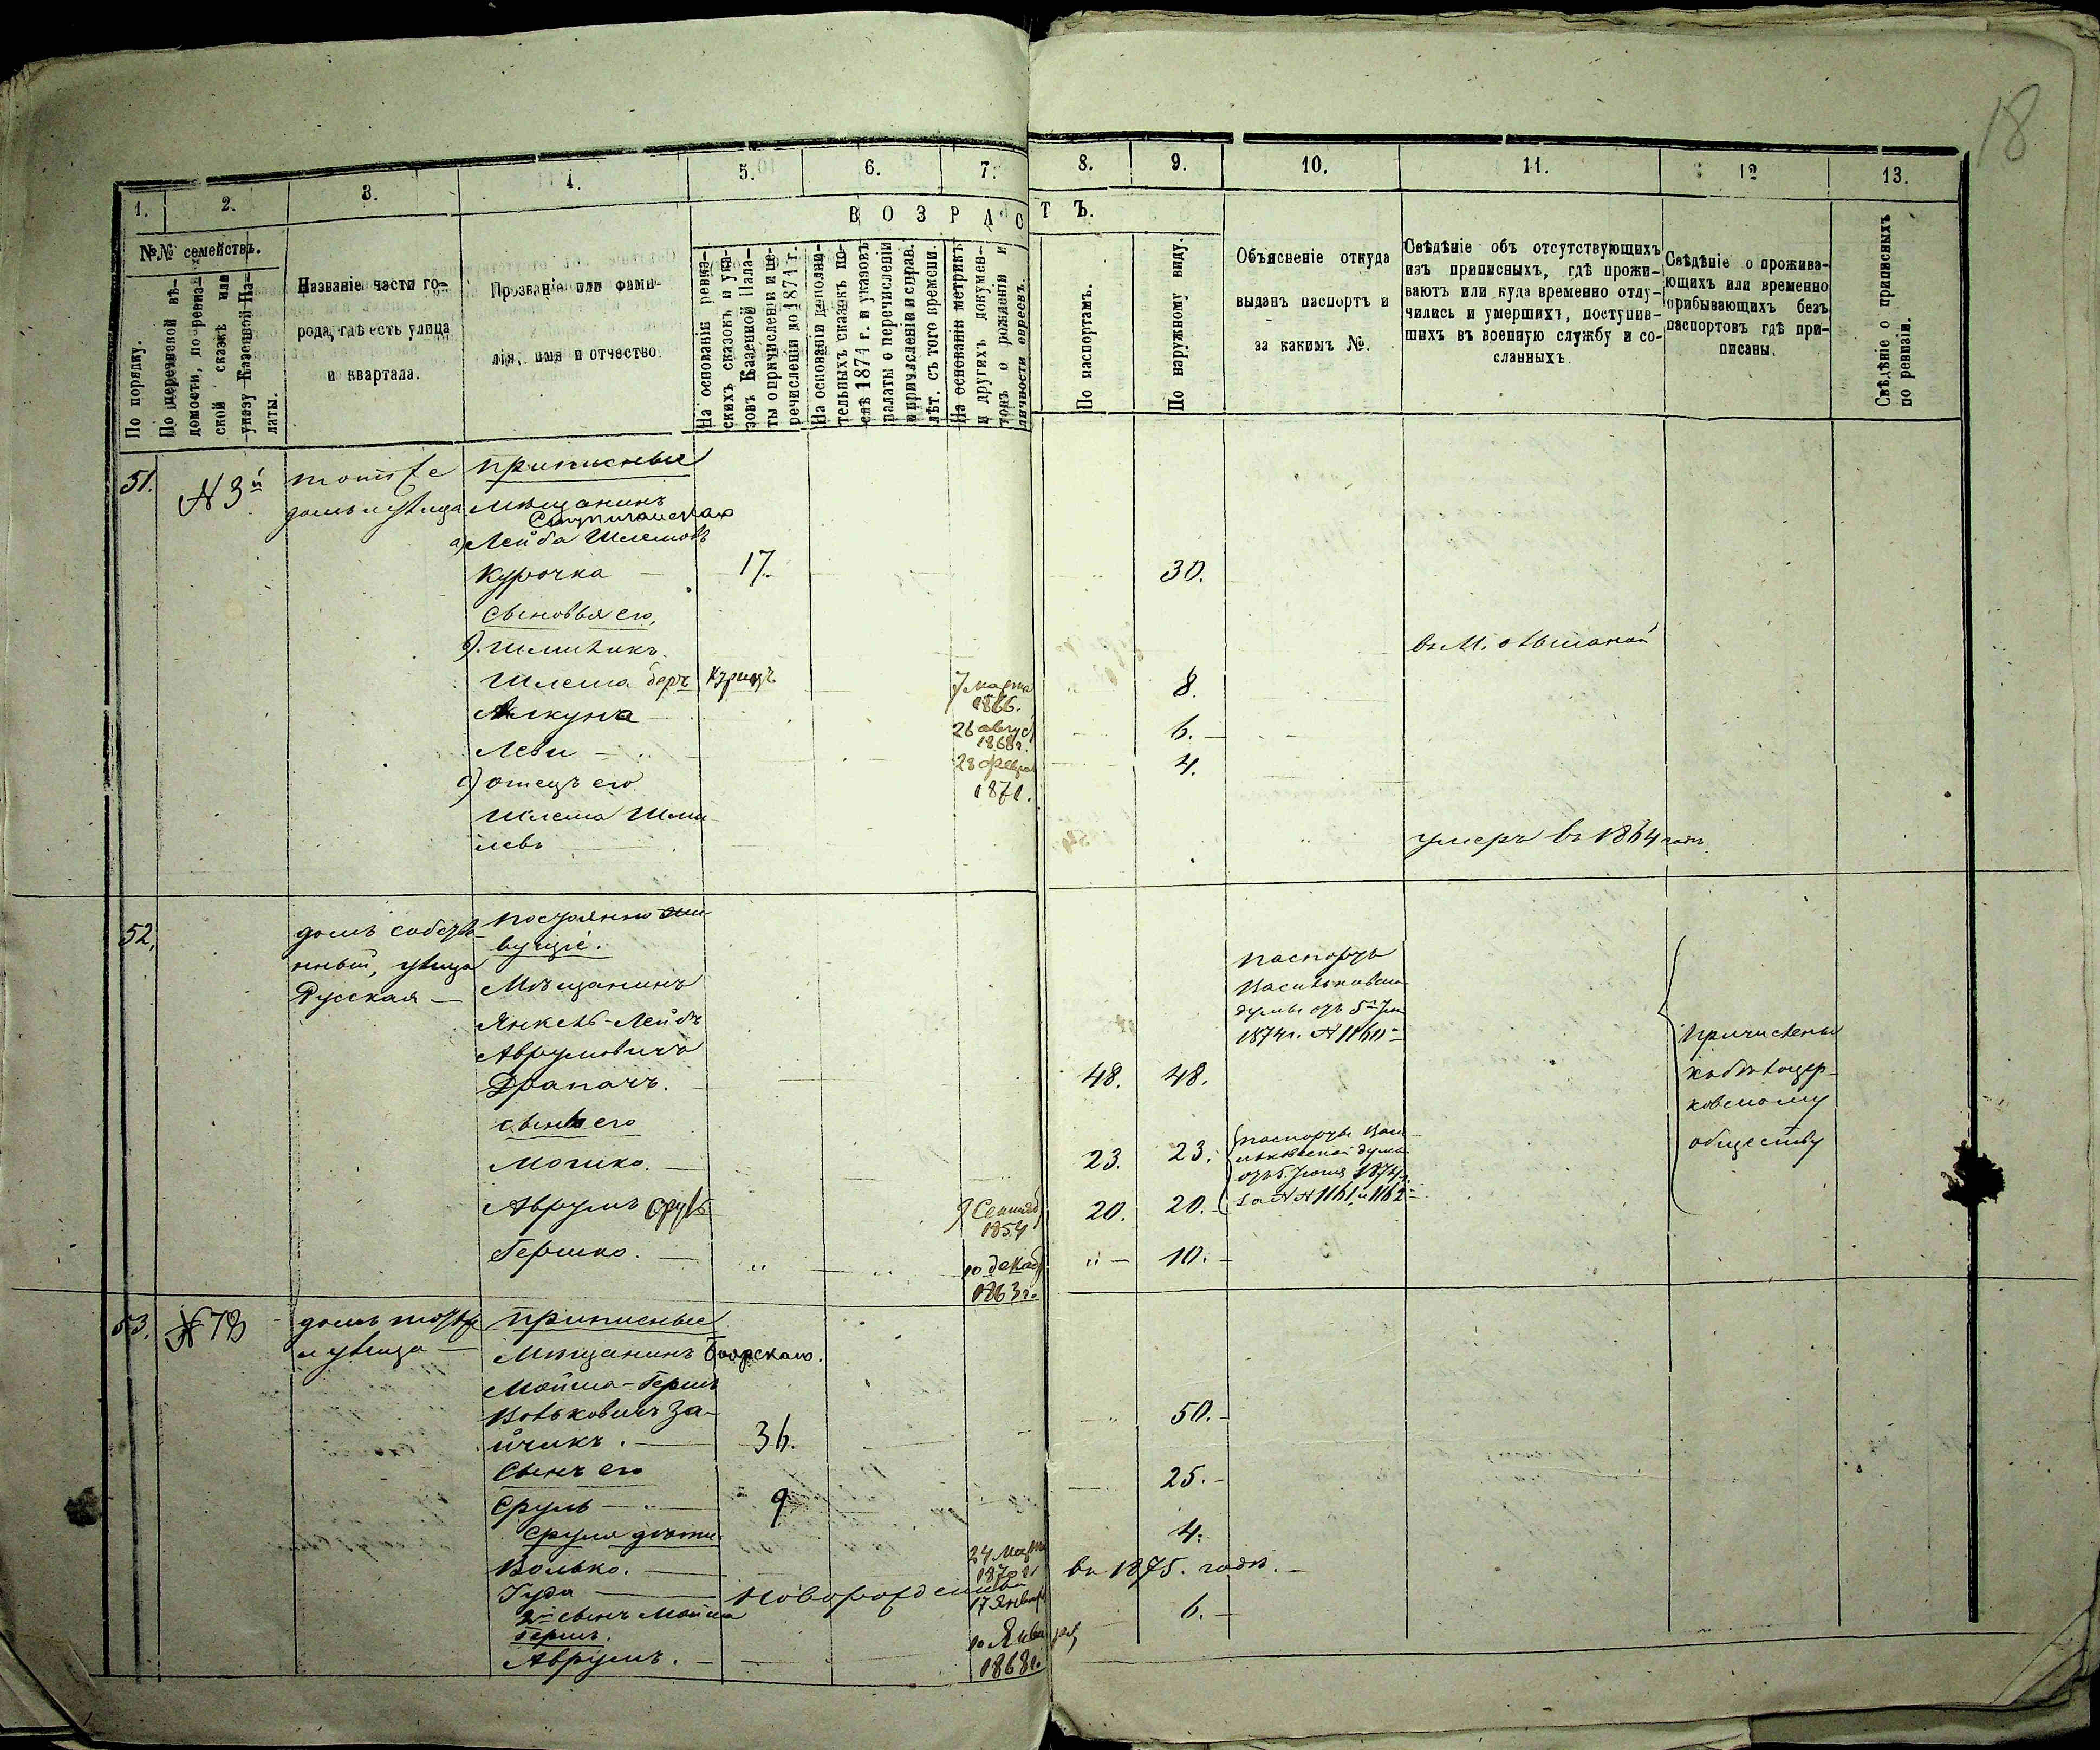 18
1.
2.
3.
4.
5.
6.
7.
8.
9.
10.
11.
12
13.
№№ семействъ.
По порядку.
По перечневой вѣ-
домости, по ревиз-
ской сказкѣ или
указу Казенной Па-
латы.
Названіе части го-
рода, гдѣ есть улица
и квартала.
Прозваніе или фами-
лія, имя и отчество.
ВОЗРАСТЪ.
На основаніи ревиз-
скихъ сказокъ и ука-
зовъ Казенной Пала-
ты о причисленіи и пе-
речисленіи до 1871 г.
На основаніи дополни-
тельныхъ сказокъ по-
слѣ 1871 г. и указовъ
палаты о перечисленіи
и причисленіи и справ.
лѣт. съ того времени.
На основаніи метрикъ
и другихъ докумен-
товъ о рожденіи и
личности евреевъ.
По паспортамъ.
По наружному виду.
Объясненіе откуда
выданъ паспортъ и
за какимъ №.
Свѣдѣніе объ отсутствующихъ
изъ приписныхъ, гдѣ прожи-
ваютъ или куда временно отлу-
чились и умершихъ, поступив-
шихъ въ военную службу и со-
сланныхъ.
Свѣдѣніе о прожива-
ющихъ или временно
прибывающихъ безъ
паспортовъ гдѣ при-
писаны.
Свѣдѣніе о приписныхъ
по ревизіи.
51.
N 3й
тотъ же
домъ и улица
приписные
Мѣщанинъ
а) Лейба Шлемовъ
Курочка
17.
30.
Сыновья его,
Шлема беръ
7 марта
1866.
8.
26 август
1868г.
6.
Леви
28 февра
1871.
4.
с) отецъ его
Шлема Шми-
левъ
умеръ въ 1864 годѣ.
52.
домъ собств-
нный, улица
Русская
постоянно жи-
вущіе.
Мѣщанинъ
Янкель-Лейбъ
Аврумовичъ
Драпачъ.
48.
48.
паспортъ
Васильковской
думы отъ 5 Iюн
1874г. N 1160
причислены
къ бѣлоцер-
ковскому
обществу
сынъ его
Мошко.
23.
23.
паспорты Васи-
льковской думы
отъ 5. Iюня 1874г.
за NN 1161 и 1162
Аврумъ Сруль
9 Сентяб
1854
20.
20.
Гершко.
10 декаб
1863г.
10.
53.
N 78
домъ тотъ же
и улица
приписные
Мѣщанинъ Боярскаго.
Мойша-Герш
Вольковичъ За-
йчикъ.
36.
50.
Сынъ его
Сруль
9
25.
Сруля дѣти
Волько.
24 Марта
1870г
4.
Iуда
Новорожденный
17 Январ
въ 1875. годѣ.
2й сынъ Мойша
Герш.
Аврумъ.
10 Января
1868г.
6.